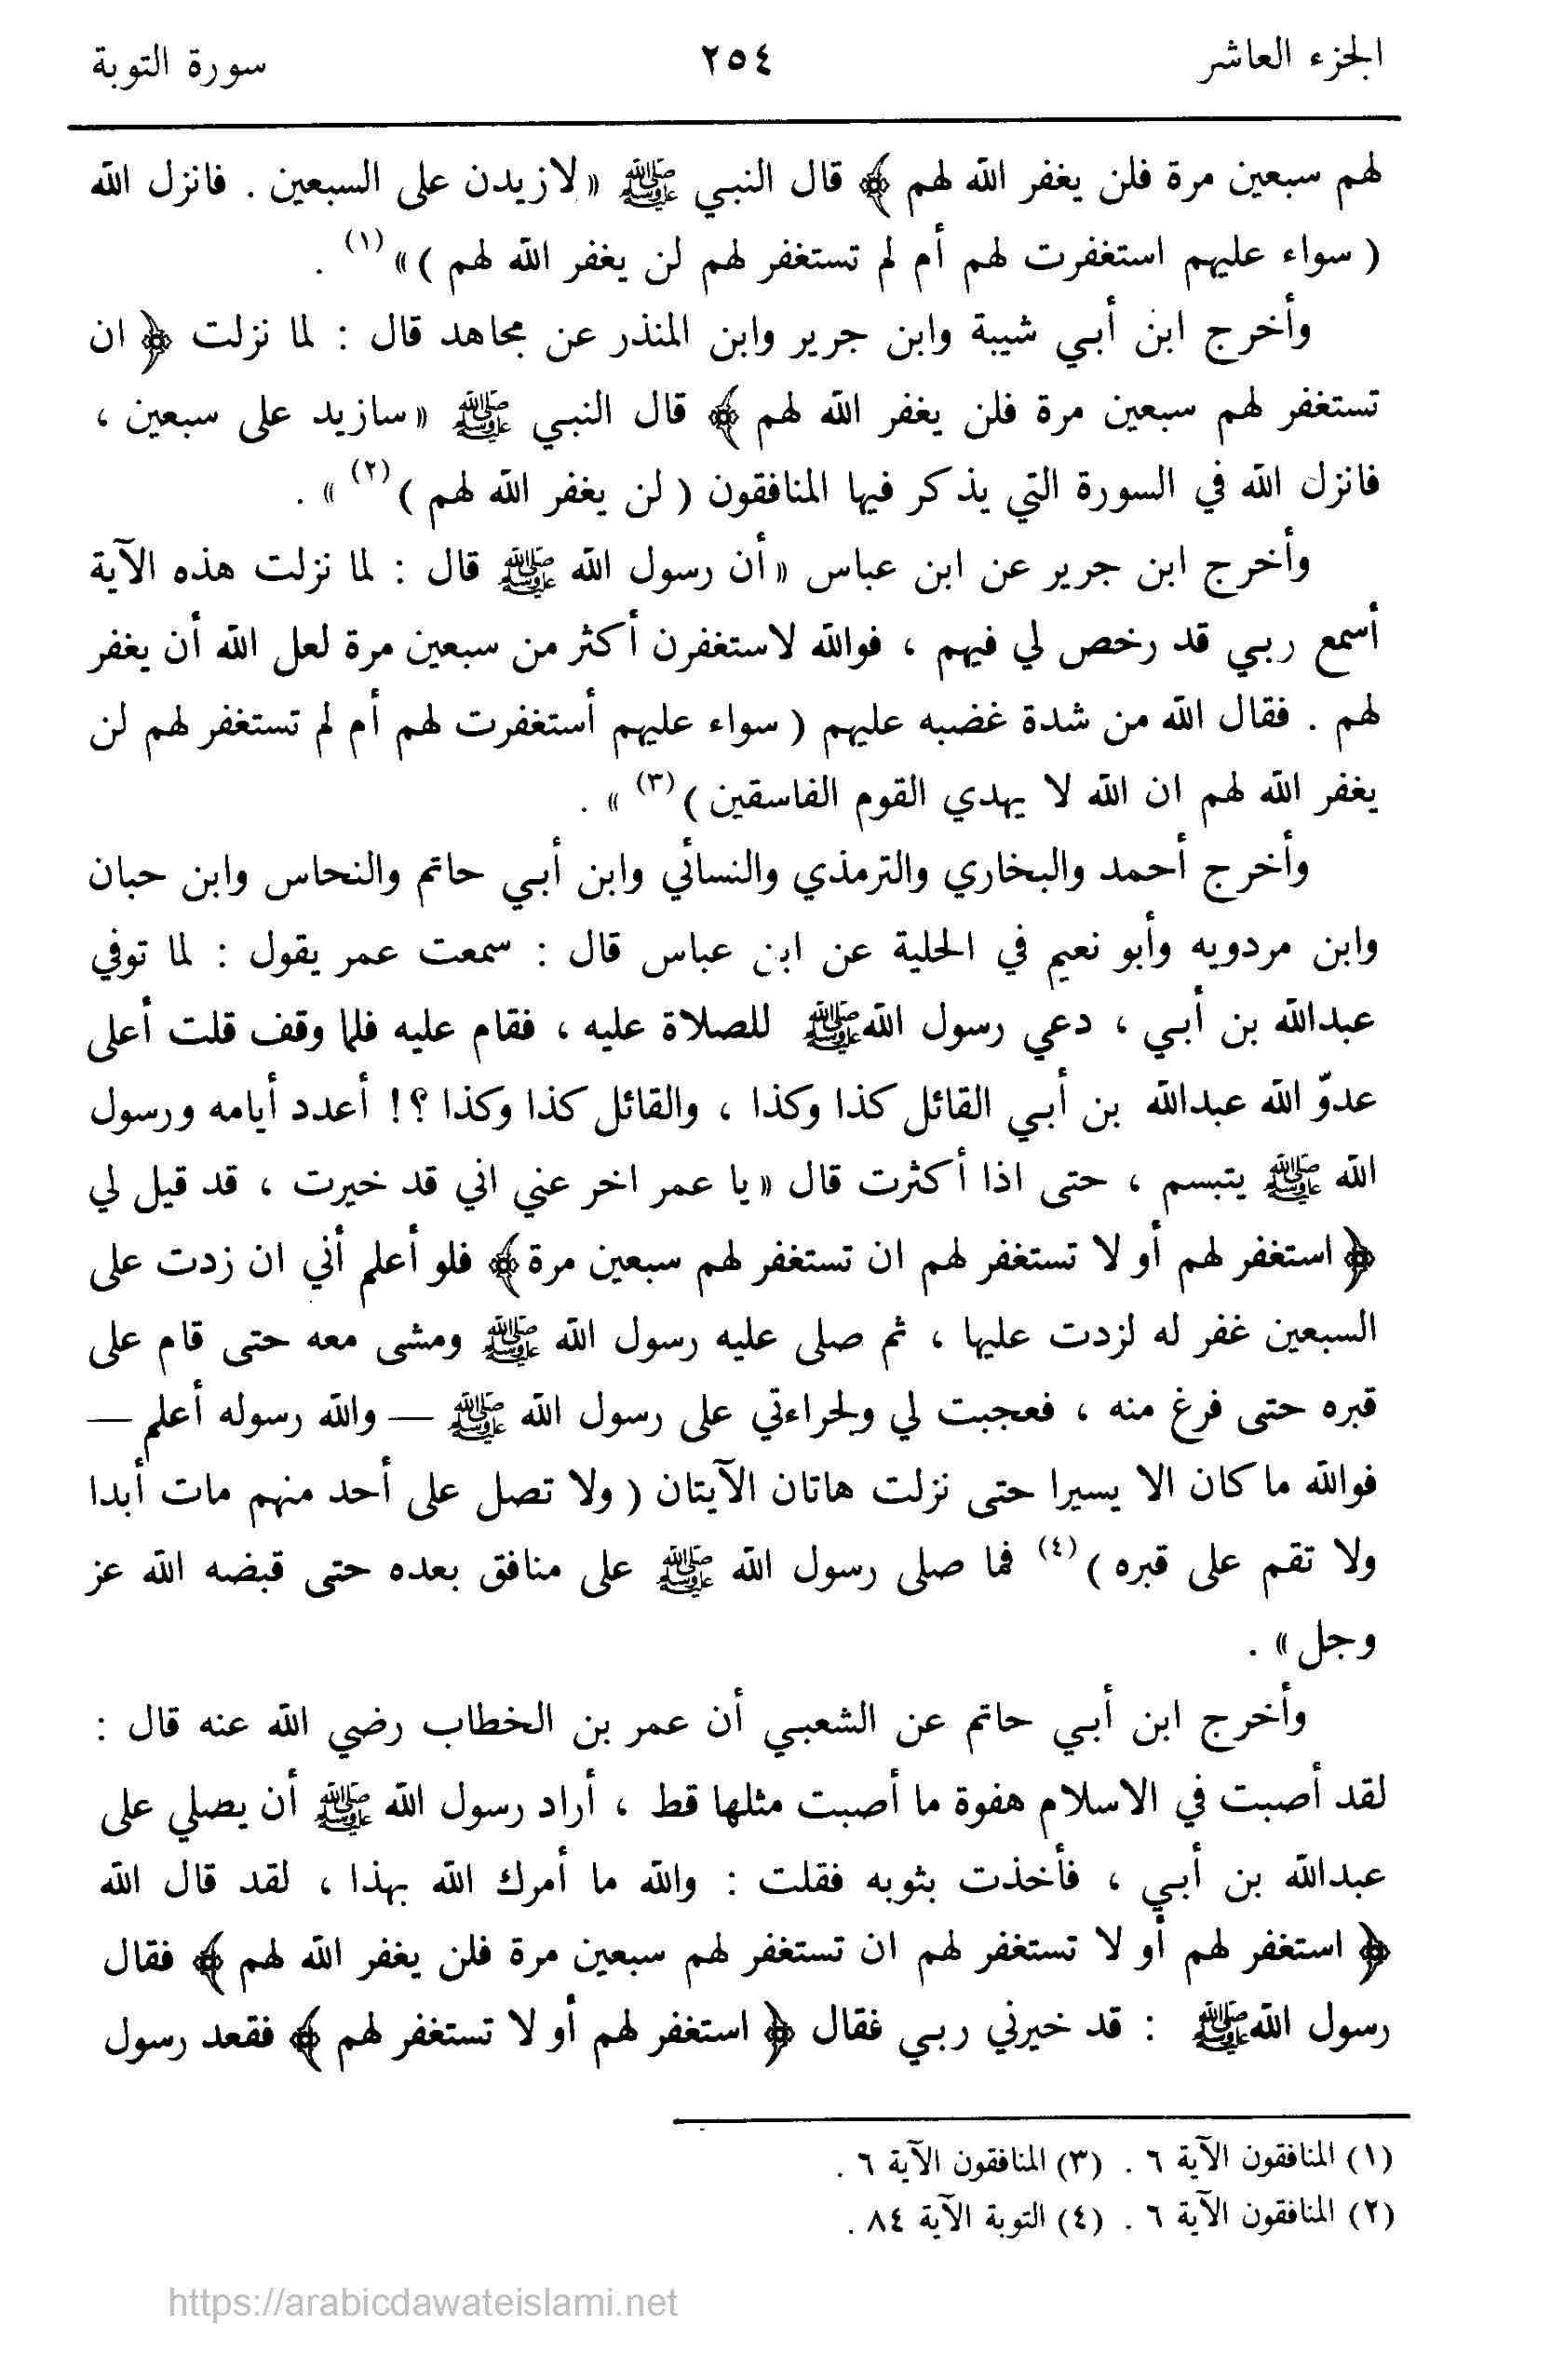 الجزء العاشر ٢٥٤ سورة التوبة
لهم سبعين مرة فلن يغفر الله لهم ﴾ قال النبي ﷺ « لازيدن على السبعين . فانزل الله
( سواء عليهم استغفرت لهم أم لم تستغفر لهم لن يغفر الله لهم ) » (١) .
وأخرج ابن أبي شيبة وابن جرير وابن المنذر عن مجاهد قال : لما نزلت ﴿ ان
تستغفر لهم سبعين مرة فلن يغفر الله لهم ﴾ قال النبي ﷺ « سازيد على سبعين ،
فانزل الله في السورة التي يذكر فيها المنافقون ( لن يغفر الله لهم ) (٢) » .
وأخرج ابن جرير عن ابن عباس « أن رسول الله ﷺ قال : لما نزلت هذه الآية
أسمع ربي قد رخص لي فيهم ، فوالله لاستغفرن أكثر من سبعين مرة لعل الله أن يغفر
لهم . فقال الله من شدة غضبه عليهم ( سواء عليهم أستغفرت لهم أم لم تستغفر لهم لن
يغفر الله لهم ان الله لا يهدي القوم الفاسقين ) (٣) » .
وأخرج أحمد والبخاري والترمذي والنسائي وابن أبي حاتم والنحاس وابن حبان
وابن مردويه وأبو نعيم في الحلية عن ابن عباس قال : سمعت عمر يقول : لما توفي
عبدالله بن أبي ، دعي رسول الله ﷺ للصلاة عليه ، فقام عليه فلما وقف قلت أعلى
عدوّ الله عبدالله بن أبي القائل كذا وكذا ، والقائل كذا وكذا ؟! أعدد أيامه ورسول
الله ﷺ يتبسم ، حتى اذا أكثرت قال « يا عمر اخر عني اني قد خيرت ، قد قيل لي
﴿ استغفر لهم أو لا تستغفر لهم ان تستغفر لهم سبعين مرة ﴾ فلو أعلم أني ان زدت على
السبعين غفر له لزدت عليها ، ثم صلى عليه رسول الله ﷺ ومشى معه حتى قام على
قبره حتى فرغ منه ، فعجبت لي ولجراءتي على رسول الله ﷺ — والله رسوله أعلم —
فوالله ما كان الا يسيرا حتى نزلت هاتان الآيتان ( ولا تصل على أحد منهم مات أبدا
ولا تقم على قبره ) (٤) فما صلى رسول الله ﷺ على منافق بعده حتى قبضه الله عز
وجل » .
وأخرج ابن أبي حاتم عن الشعبي أن عمر بن الخطاب رضي الله عنه قال :
لقد أصبت في الاسلام هفوة ما أصبت مثلها قط ، أراد رسول الله ﷺ أن يصلي على
عبدالله بن أبي ، فأخذت بثوبه فقلت : والله ما أمرك الله بهذا ، لقد قال الله
﴿ استغفر لهم أو لا تستغفر لهم ان تستغفر لهم سبعين مرة فلن يغفر الله لهم ﴾ فقال
رسول الله ﷺ : قد خيرني ربي فقال ﴿ استغفر لهم أو لا تستغفر لهم ﴾ فقعد رسول
(١) المنافقون الآية ٦ . (٣) المنافقون الآية ٦ .
(٢) المنافقون الآية ٦ . (٤) التوبة الآية ٨٤ .
https://arabicdawateislami.net